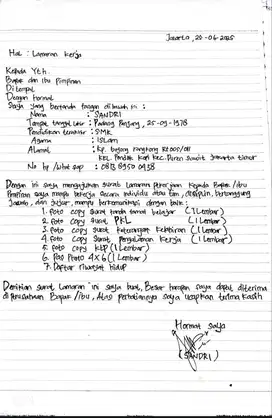 Jakarta, 20-06-2025
Hal : Lamaran kerja
Kepada Yth.
Bapak dan Ibu Pimpinan
Di tempat
Dengan hormat
Saya yang bertanda tangan dibawah ini :
Nama : SANDRI
Tempat tanggal Lahir : Padang Panjang, 25-09-1978
Pendidikan terakhir : SMK
Agama : Islam
Alamat : Kp. bojong rangkong Rt 005/08
KEL. Pondok Kopi Kec. Duren Sawit Jakarta timur
No hp / What sap : 0813 8950 0438
Dengan ini saya mengajukan surat lamaran pekerjaan Kepada Bapak/ibu
Pimpinan saya mampu bekerja secara individu atau tim, disiplin, bertanggung
Jawab, dan jujur, mampu berkomunikasi dengan baik :
1. foto copy surat tanda tamat belajar (1 Lembar)
2. foto copy surat PKL (1 Lembar)
3. foto copy surat keterangan kelahiran (1 Lembar)
4. foto copy surat pengalaman Kerja (1 Lembar)
5. foto copy KTP (1 Lembar)
6. Pas Photo 4x6 (1 Lembar)
7. Daftar riwayat hidup
Demikian surat Lamaran ini saya buat, Besar harapan saya dapat diterima
di perusahaan Bapak/ibu, Atas perhatiannya saya ucapkan terima kasih
Hormat saya
(SANDRI)